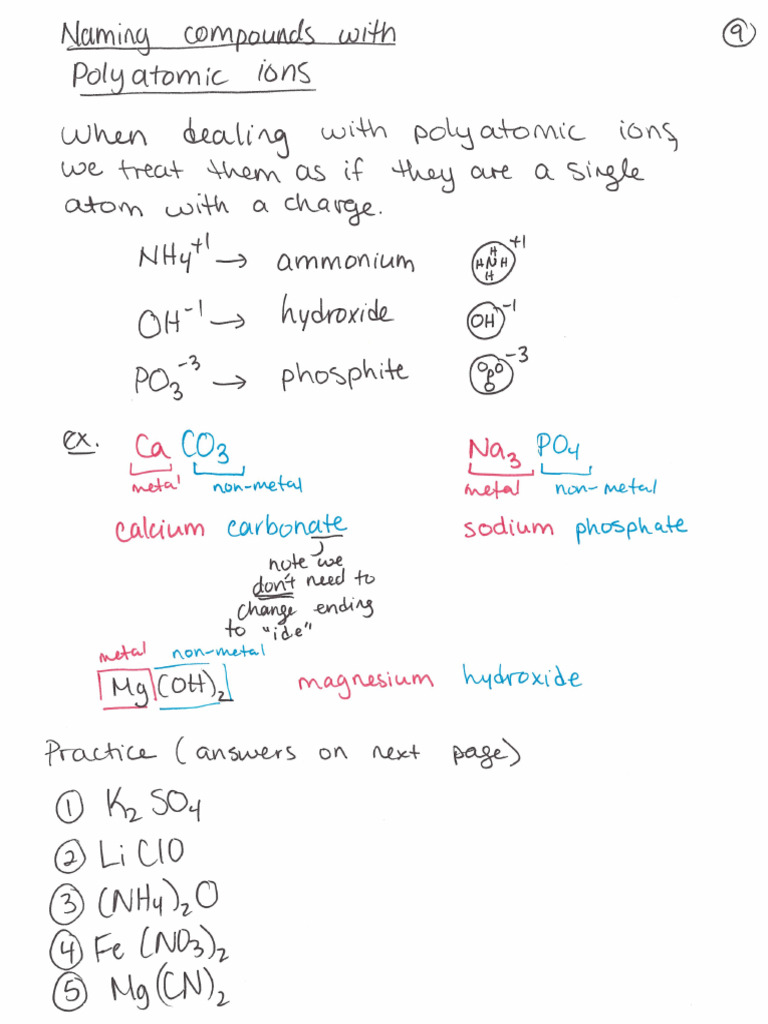 Naming compounds with
Polyatomic ions
9
When dealing with polyatomic ions,
we treat them as if they are a single
atom with a charge.
NH4+1 → ammonium H H N H H +1
OH-1 → hydroxide OH -1
PO3-3 → phosphite O P O O -3
ex. Ca CO3 Na3 PO4
metal non-metal metal non-metal
calcium carbonate sodium phosphate
note we
don't need to
change ending
to "ide"
metal non-metal
Mg(OH)2 magnesium hydroxide
Practice (answers on next page)
1 K2SO4
2 LiClO
3 (NH4)2O
4 Fe(NO3)2
5 Mg(CN)2